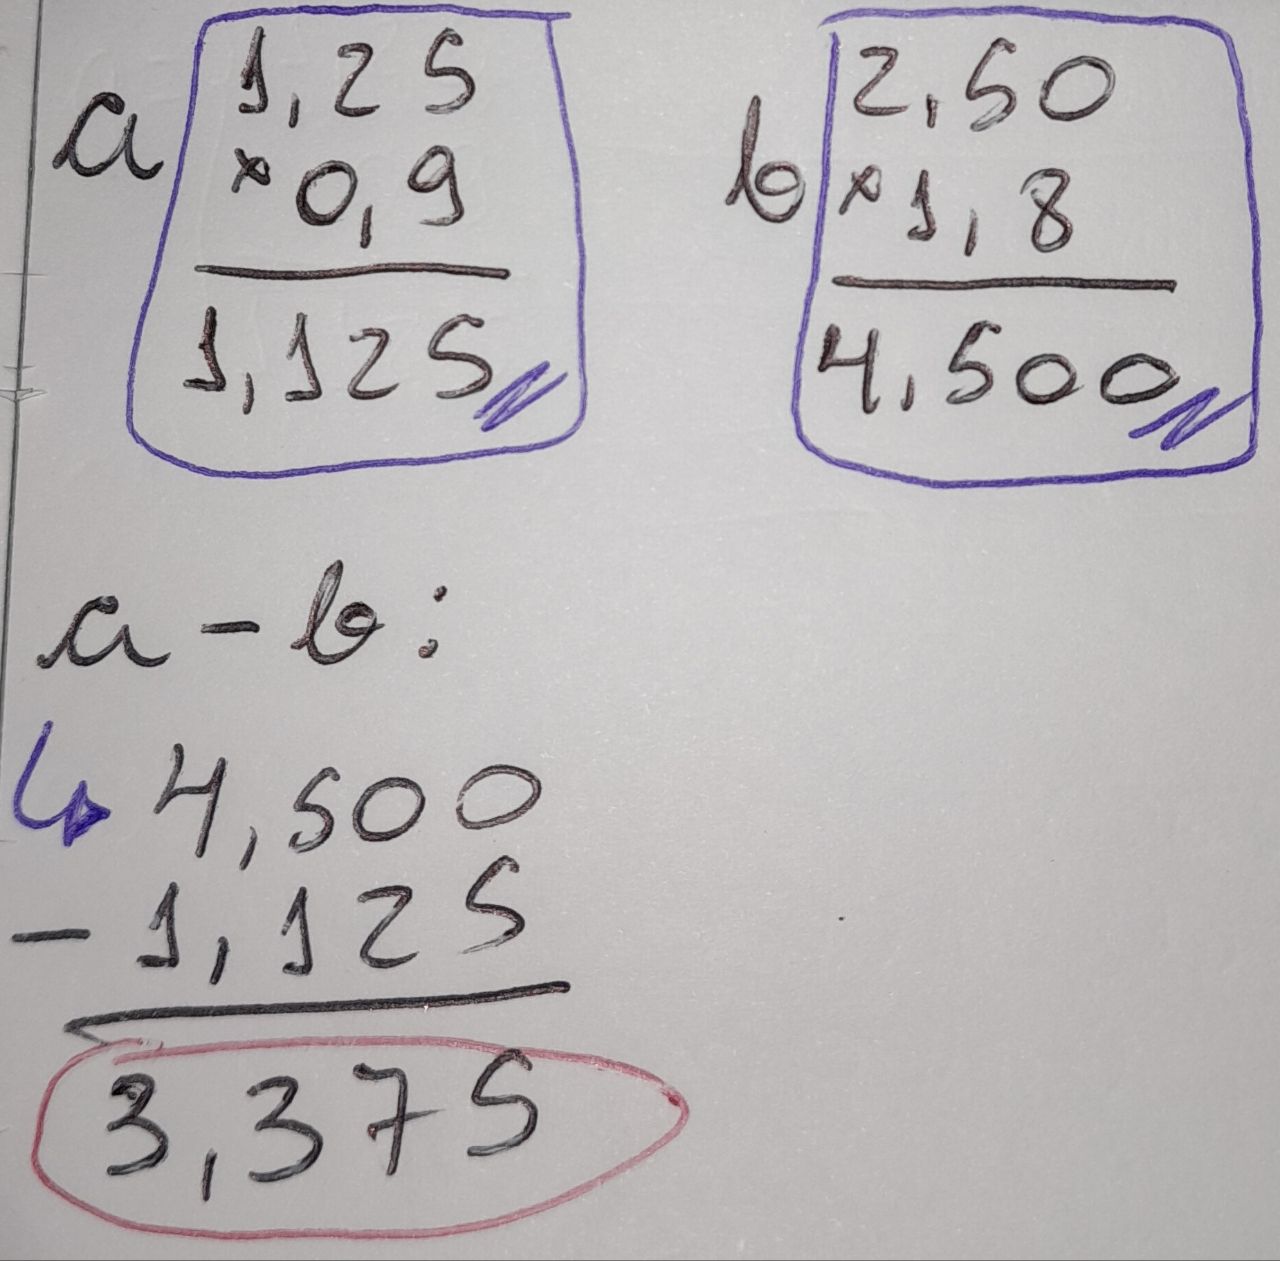 a
1,25
× 0,9
1,125
b
2,50
× 1,8
4,500
a - b:
4,500
- 1,125
3,375